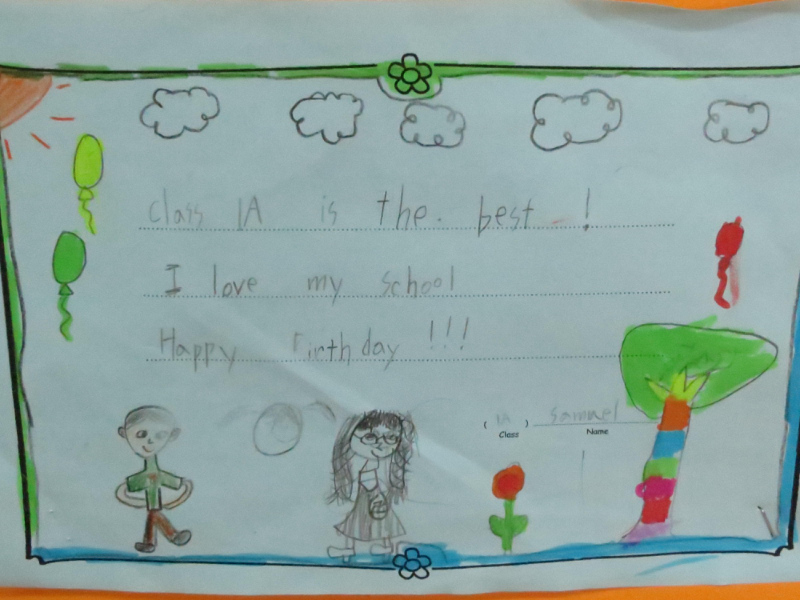 class 1A is the. best !
I love my school
Happy Birthday !!!
( 1A ) Samuel
Class Name